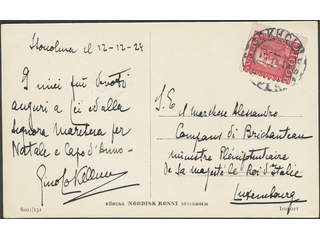 Stoccolma il 12-12-24
I miei più devoti
auguri a Lei ed alla
Signora Marchesa per
Natale e Capo d'Anno -
S. E.
il Marchese Alessandro
Compans di Brichanteau
ministre Plénipotentiaire
de Sa majesté le Roi d'Italie
Luxembourg
FÖRLAG NORDISK KONST STOCKHOLM